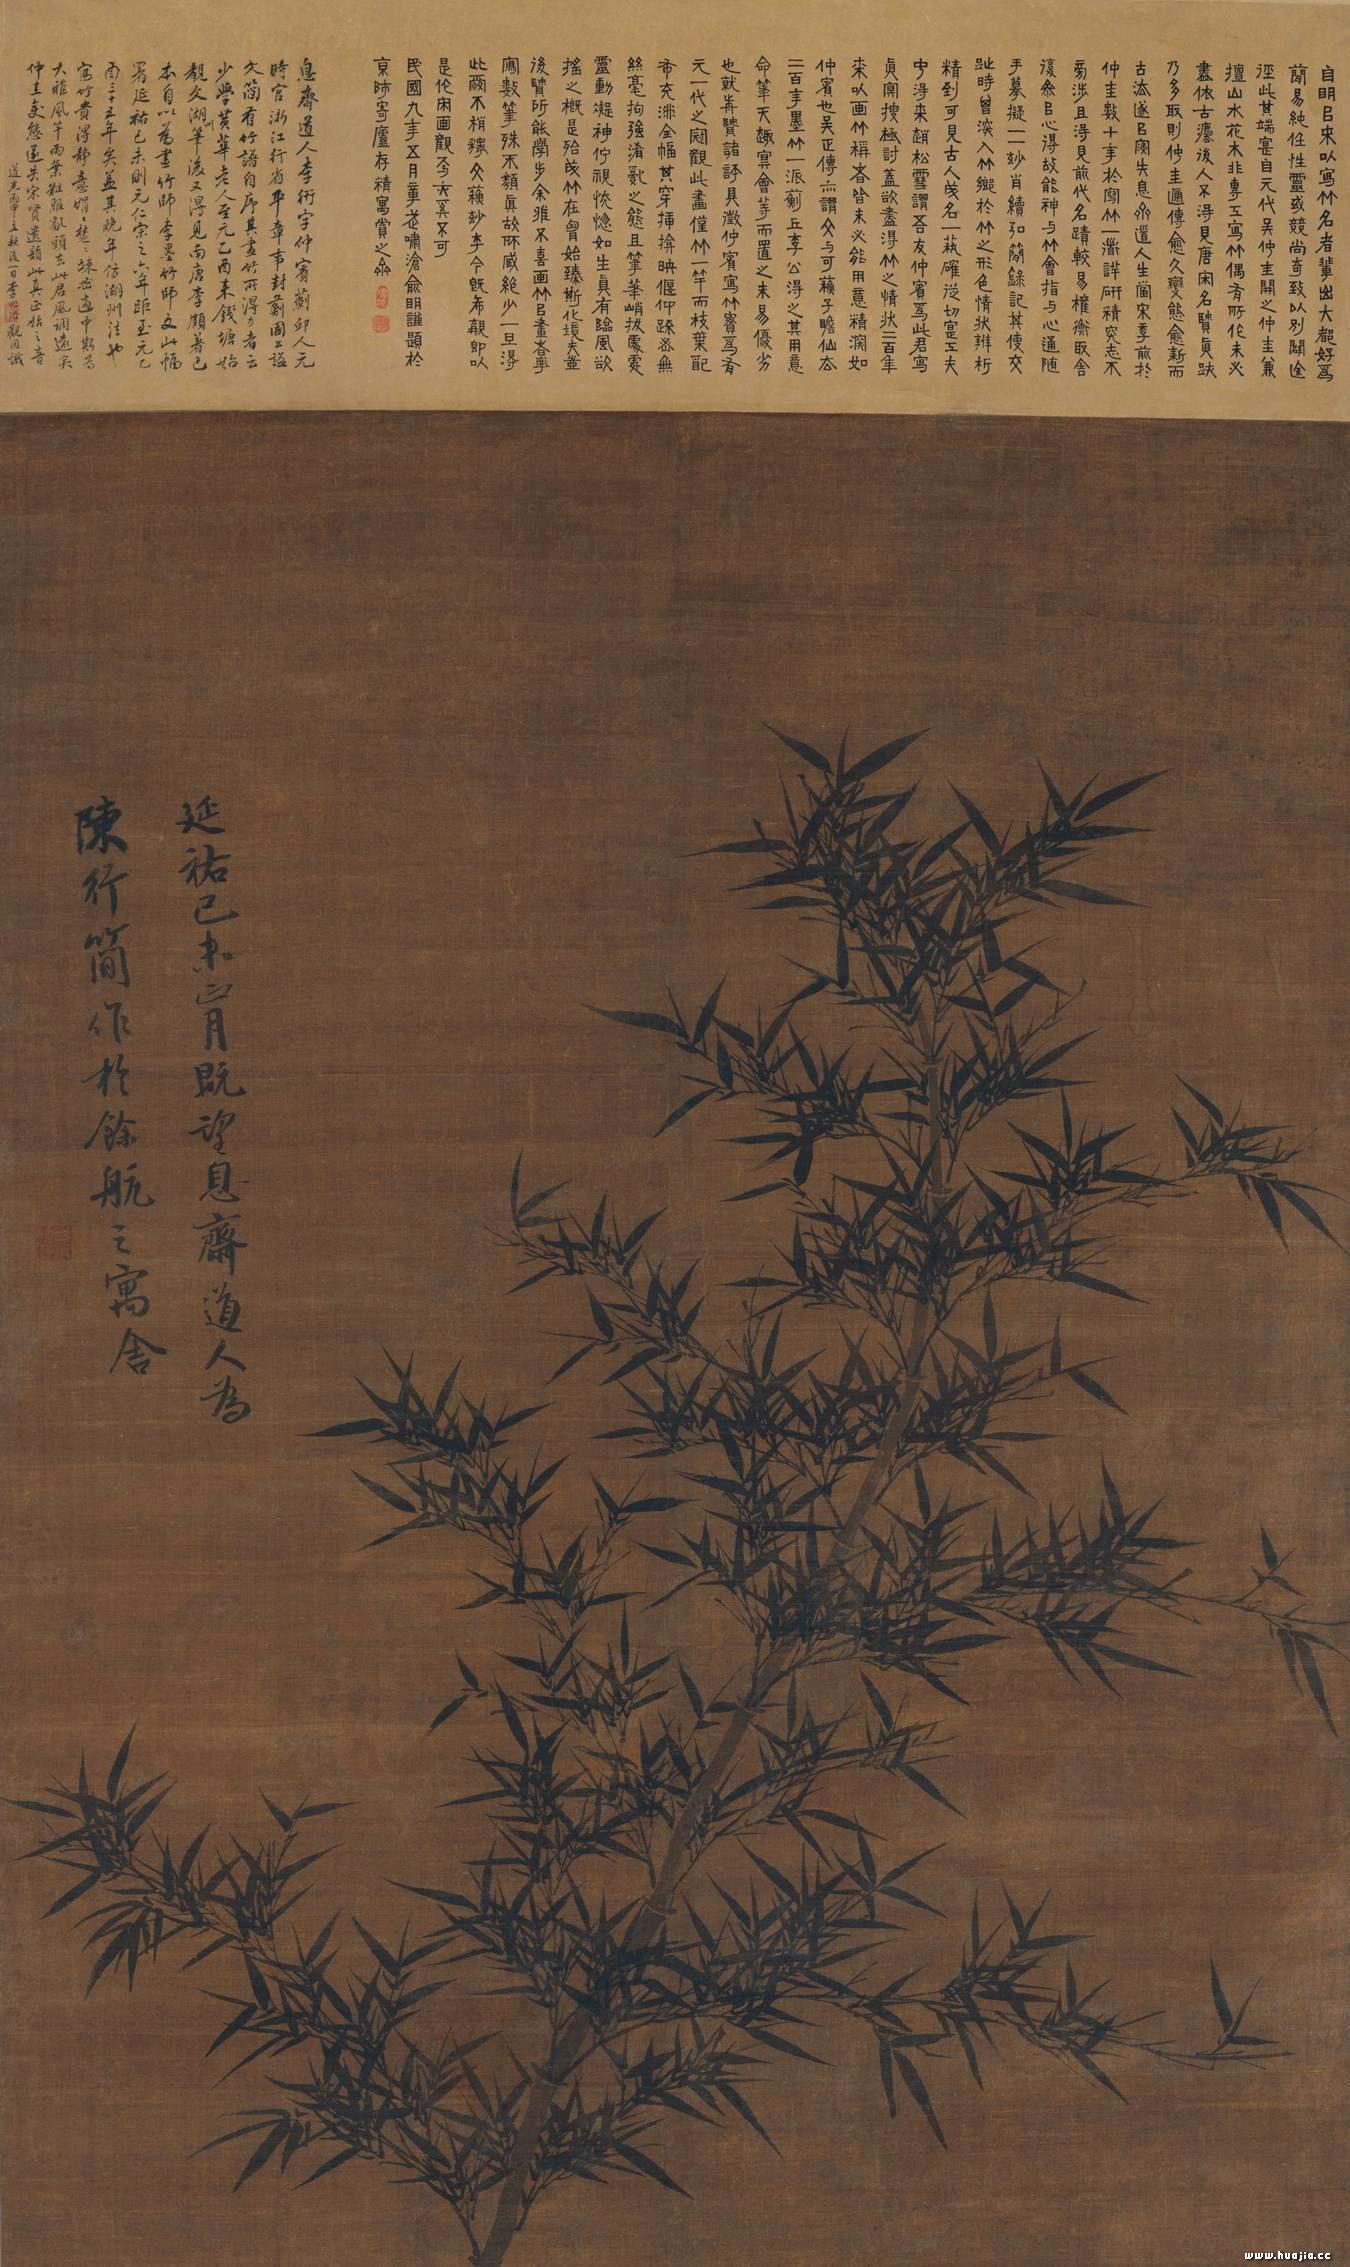 自明㠯來以寫竹名者輩出大都好為
簡易純任性靈或競尚奇致以別闢途
逕此其端寔自元代吴仲圭開之仲圭兼
擅山水花木非專工寫竹偶有所作未必
盡依古灋後人不得見唐宋名賢真跡
乃多取則仲圭遞傳愈久變態愈新而
古法遂㠯寖失息齋道人生當宋季前於
仲圭數十年於寫竹一道詳研精究志不
旁涉且得見前代名蹟較易權衡取舍
復參㠯心得故能神与竹會指与心通隨
手摹擬一一妙肖續弘簡錄記其使交
趾時曾深入竹鄉於竹之形色情狀辨析
精到可見古人成名一藝確從切寔工夫
中得來趙松雪謂吾友仲賓為此君寫
真冥搜極討蓋欲盡得竹之情狀二百年
來以画竹稱者皆未必能用意精深如
仲賓也吴正傳亦謂文与可蘇子瞻仙去
二百年墨竹一派薊丘李公得之其用意
命筆天趣冥會等而置之未易優劣
也就前賢諸評具徵仲賓寫竹實為有
元一代之冠觀此畫僅竹一竿而枝葉配
布充沛全幅其穿插掩映偃仰疏密無
絲毫拘強淆亂之態且筆筆峭拔處處
靈動凝神佇視恍惚如生真有臨風欲
搖之概是殆成竹在胸始臻斯化境夫豈
後賢所能學步余雅不喜画竹㠯畫者率
寫數筆殊不類真故所臧絕少一旦得
此爾不稍穢文蘇妙手今既希覯即以
是伦宋画觀天奚不可
民國九年五月重光嘯滄俞明謹題於
京師寄廬存精寓賞之齋
息齋道人李衎字仲賓薊邱人元
時官浙江行省平章事封薊國公謚
文簡有竹譜自序其畫竹所得力者云
少學黄華老人至元乙酉來錢塘始
覩文湖州筆後又得見南唐李頗著色
本自以為畫竹師李墨竹師文此幅
署延祐己未則元仁宗之六年距至元乙
酉三十五年矣蓋其晚年仿湖州法也
寫竹貴得靜意娟娟楚楚疎密適中斯為
大雅風竿雨葉粗服亂頭去此君風調遠矣
仲圭變態遂失宋賢遺韻此真正法之音
延祐己未正月既望息齋道人為
陳行簡作於餘杭之寓舍
www.huajia.cc